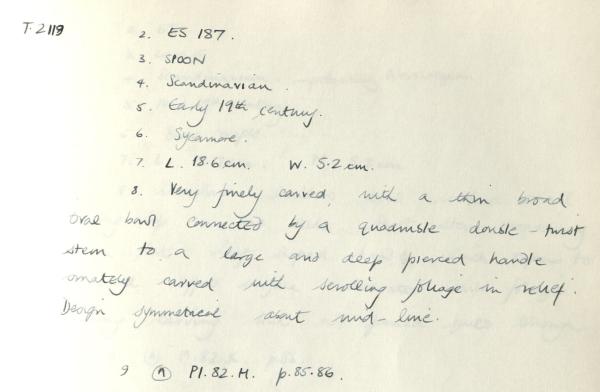 T.2119
2. ES 187.
3. SPOON
4. Scandinavian.
5. Early 19th century.
6. Sycamore.
7. L. 18.6 cm. W. 5.2 cm.
8. Very finely carved, with a thin broad
oval bowl connected by a quadruple double-twist
stem to a large and deep pierced handle
ornately carved with scrolling foliage in relief.
Design symmetrical about mid-line.
9 (a) Pl. 82. H. p. 85-86.